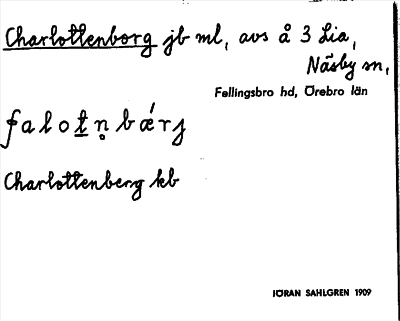 Charlottenborg jb ml, avs å 3 Lia,
Näsby sn,
Fellingsbro hd, Örebro län
falotn̥bǽrj
Charlottenberg kb
JÖRAN SAHLGREN 1909